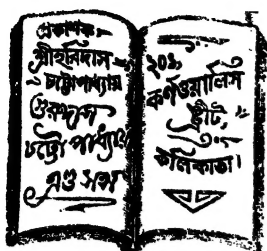 প্রকাশক:
শ্রীহরিদাস
চট্টোপাধ্যায়
গুরুদাস
চট্টোপাধ্যায়
এণ্ড সন্স
২০১
কর্ণওয়ালিস
স্ট্রীট,
কলিকাতা।